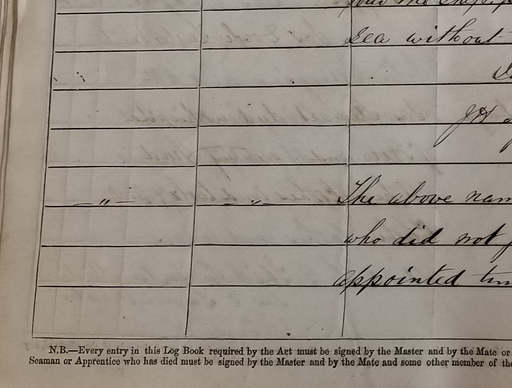 Sea without
The above nam
who did not
appointed tim
N.B.—Every entry in this Log Book required by the Act must be signed by the Master and by the Mate or
Seaman or Apprentice who has died must be signed by the Master and by the Mate and some other member of the